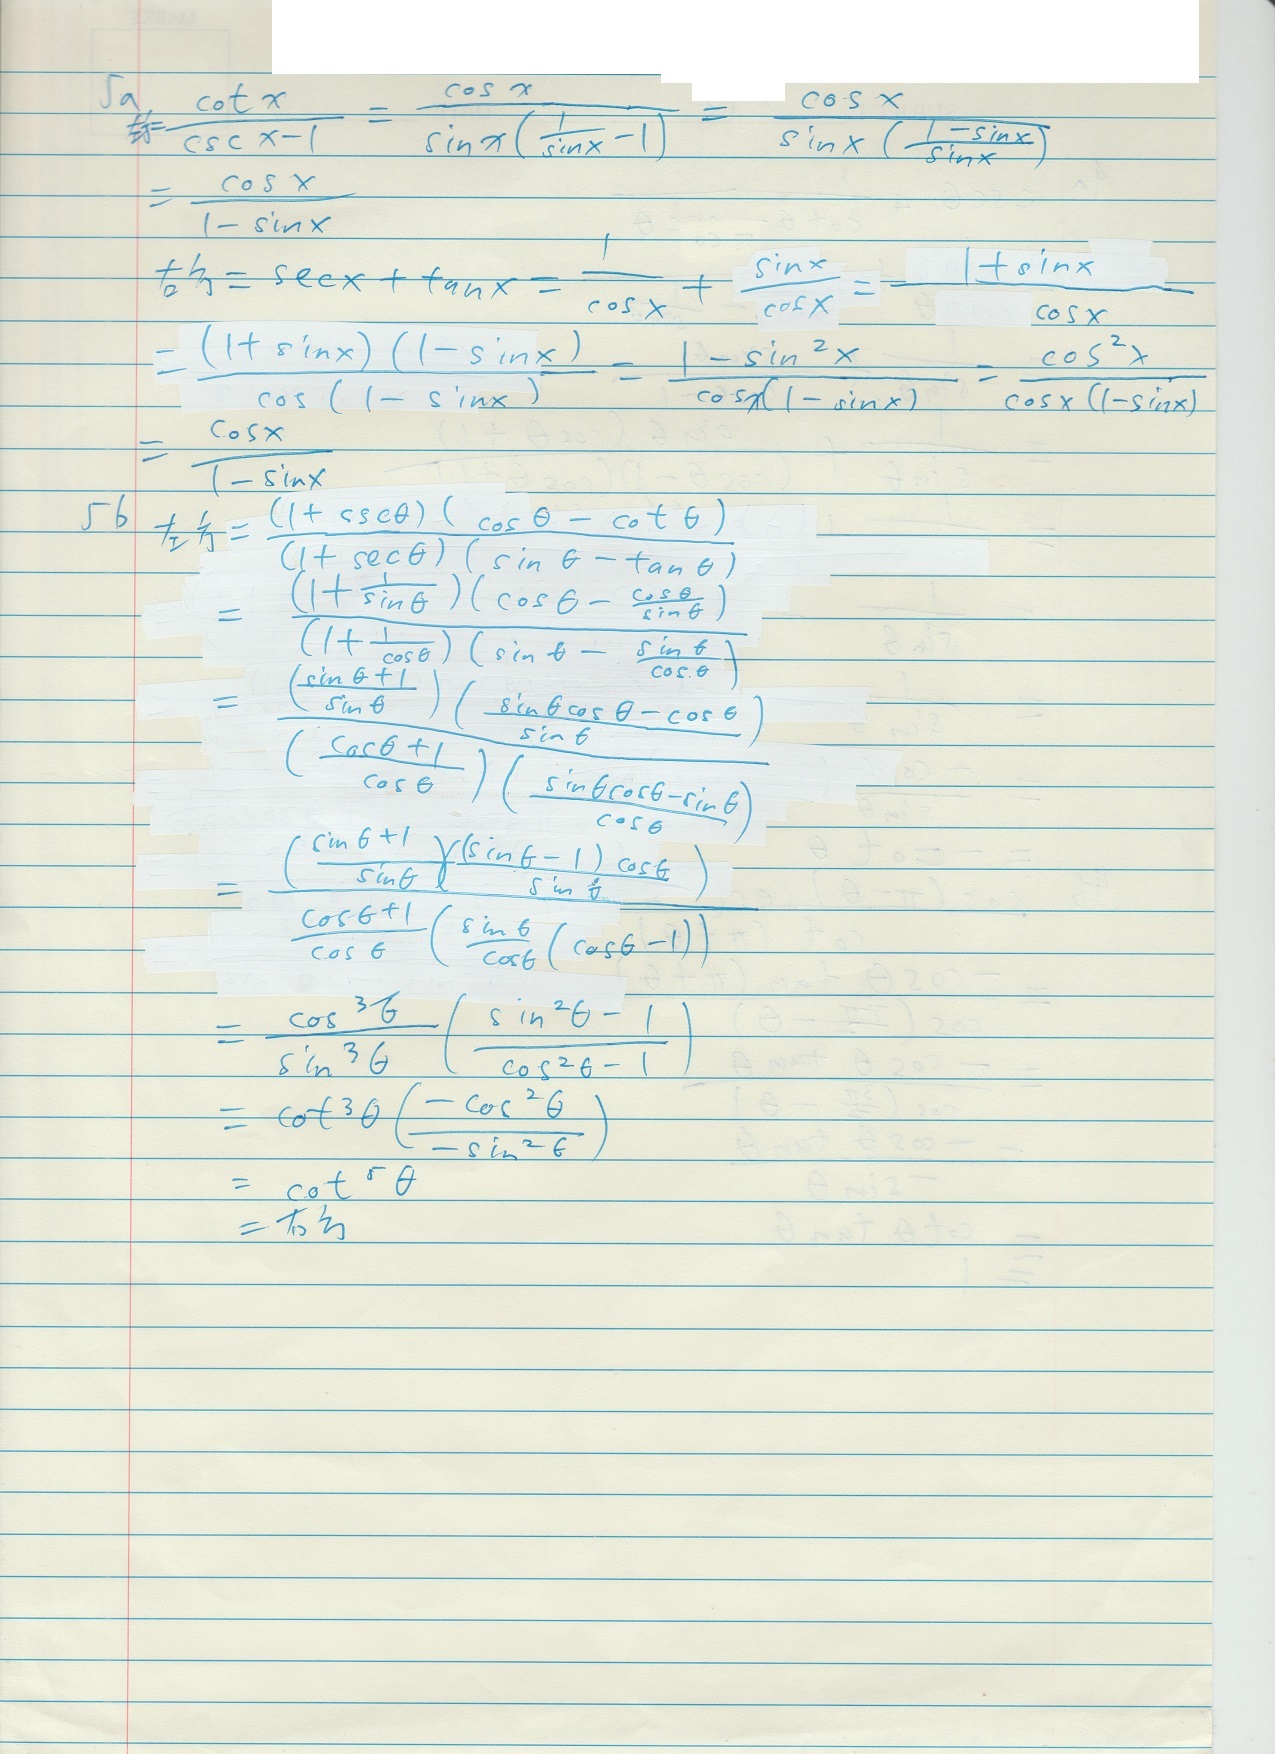 5a. 左方= cot x / (csc x - 1) = cos x / (sin x (1/sin x - 1)) = cos x / (sin x ((1 - sin x)/sin x))
= cos x / (1 - sin x)
右方 = sec x + tan x = 1/cos x + sin x/cos x = (1 + sin x)/cos x
= (1 + sin x)(1 - sin x) / cos (1 - sin x) = (1 - sin²x) / (cos x (1 - sin x)) = cos²x / (cos x (1 - sin x))
= cos x / (1 - sin x)
5b 左方 = (1 + cscθ)(cosθ - cotθ) / (1 + secθ)(sinθ - tanθ)
= (1 + 1/sinθ)(cosθ - cosθ/sinθ) / (1 + 1/cosθ)(sinθ - sinθ/cosθ)
= ((sinθ + 1)/sinθ)((sinθcosθ - cosθ)/sinθ) / ((cosθ + 1)/cosθ)((sinθcosθ - sinθ)/cosθ)
= ((sinθ + 1)/sinθ)((sinθ - 1)cosθ/sinθ) / (cosθ + 1)/cosθ (sinθ/cosθ (cosθ - 1))
= cos³θ/sin³θ ((sin²θ - 1)/(cos²θ - 1))
= cot³θ (-cos²θ / -sin²θ)
= cot⁵θ
= 右方